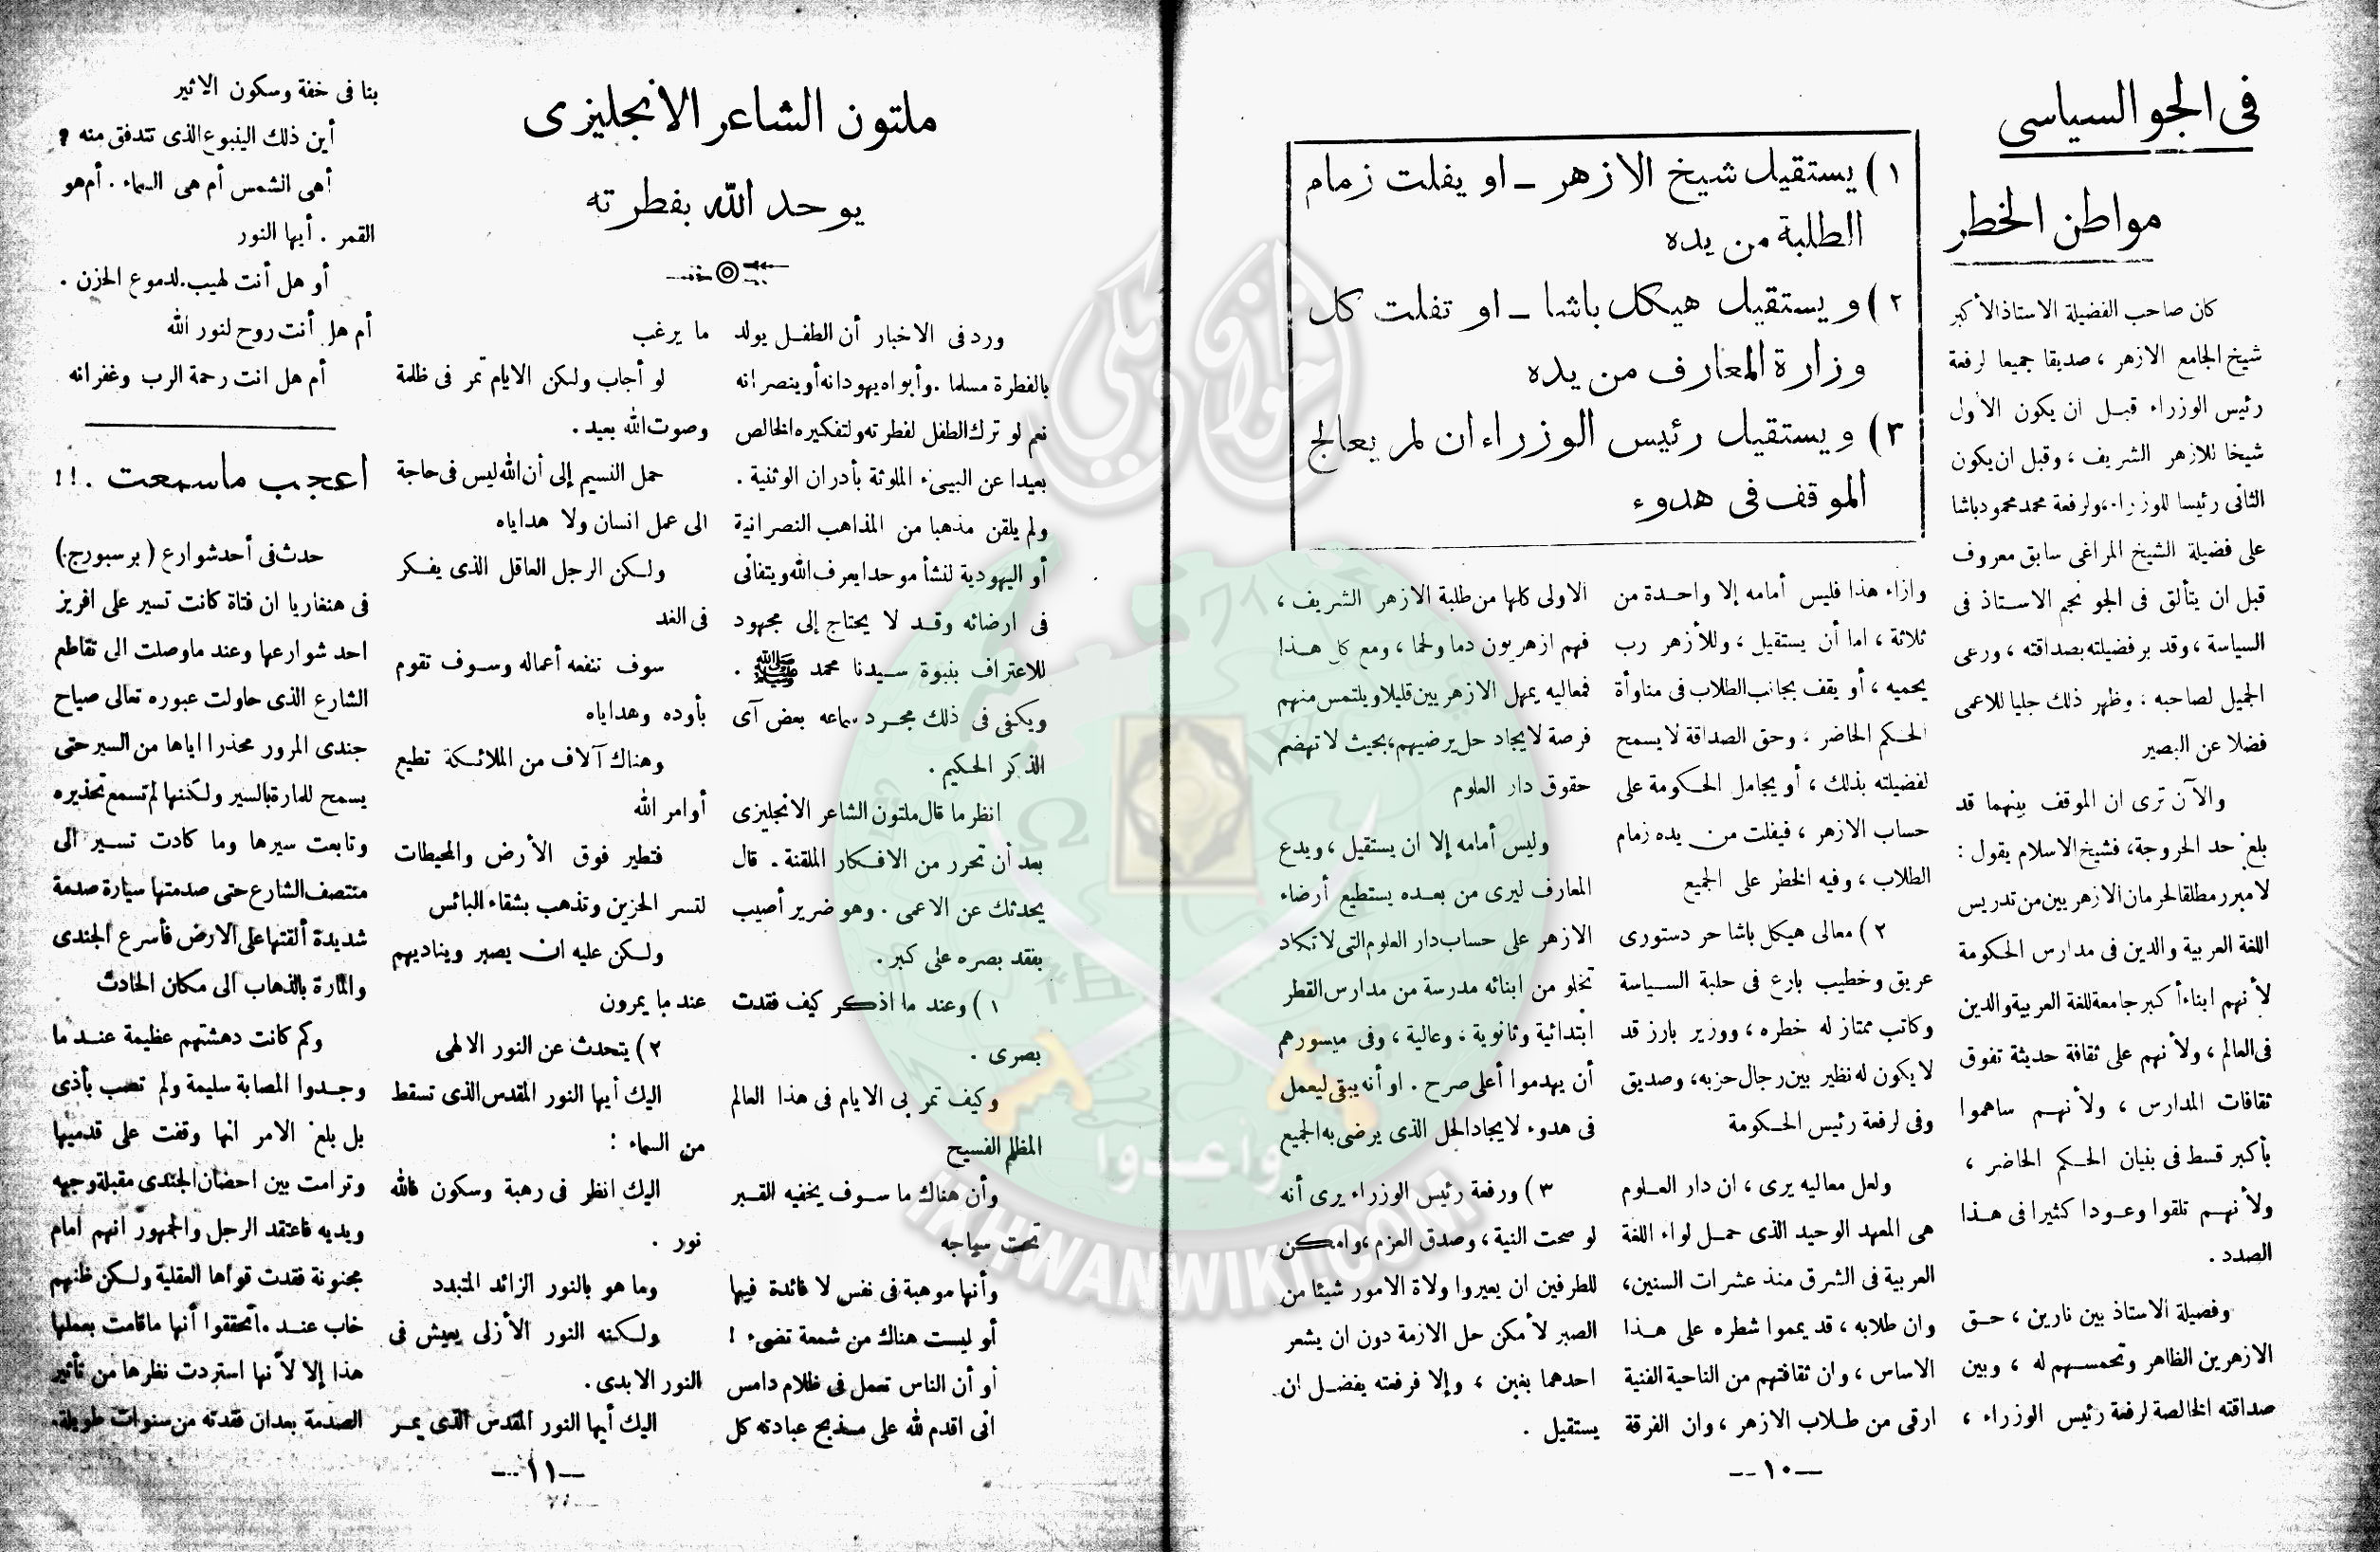 فى الجو السياسى
مواطن الخطر
١) يستقيل شيخ الازهر — او يفلت زمام
الطلبة من يده
٢) ويستقيل هيكل باشا — او تفلت كل
وزارة المعارف من يده
٣) ويستقيل رئيس الوزراء ان لم يعالج
الموقف فى هدوء
كان صاحب الفضيلة الاستاذ الأكبر
شيخ الجامع الازهر ، صديقا جميعا لرفعة
رئيس الوزراء قبل ان يكون الأول
شيخا للازهر الشريف ، وقبل ان يكون
الثانى رئيسا للوزراء، ولرفعة محمد محمود باشا
على فضيلة الشيخ المراغى سابق معروف
قبل ان يتألق فى الجو نجم الاستاذ فى
السياسة ، وقد بر فضيلته بصداقته ، ورعى
الجميل لصاحبه ، وظهر ذلك جليا للاعمى
فضلا عن البصير
والآن ترى ان الموقف بينهما قد
بلغ حد الحروجة، فشيخ الاسلام يقول :
لا مبرر مطلقا لحرمان الازهريين من تدريس
اللغة العربية والدين فى مدارس الحكومة
لأنهم ابناء أكبر جامعة للغة العربية والدين
فى العالم ، ولأنهم على ثقافة حديثة تفوق
ثقافات المدارس ، ولأنهم ساهموا
بأكبر قسط فى بنيان الحكم الحاضر ،
ولأنهم تلقوا وعودا كثيرا فى هذا
الصدد .
وفضيلة الاستاذ بين نارين ، حق
الازهرين الظاهر وتحمسهم له ، وبين
صداقته الخالصة لرفعة رئيس الوزراء ،
وازاء هذا فليس أمامه إلا واحدة من
ثلاثة ، اما أن يستقيل ، وللأزهر رب
يحميه ، أو يقف بجانب الطلاب فى مناوأة
الحكم الحاضر ، وحق الصداقة لا يسمح
لفضيلته بذلك ، أو يجامل الحكومة على
حساب الازهر ، فيفلت من يده زمام
الطلاب ، وفيه الخطر على الجميع
٢) معالى هيكل باشا حر دستورى
عريق وخطيب بارع فى حلبة السياسة
وكاتب ممتاز له خطره ، ووزير بارز قد
لا يكون له نظير بين رجال حزبه، وصديق
وفى لرفعة رئيس الحكومة
ولعل معاليه يرى ، ان دار العلوم
هى المعهد الوحيد الذى حمل لواء اللغة
العربية فى الشرق منذ عشرات السنين،
وان طلابه ، قد يمموا شطره على هذا
الاساس ، وان ثقافتهم من الناحية الفنية
ارقى من طلاب الازهر ، وان الفرقة
الاولى كلها من طلبة الازهر الشريف ،
فهم ازهريون دما ولحما ، ومع كل هذا
فمعاليه يمهل الازهريين قليلا ويلتمس منهم
فرصة لايجاد حل يرضيهم، بحيث لا تهضم
حقوق دار العلوم
وليس أمامه إلا ان يستقيل ، ويدع
المعارف ليرى من بعده يستطيع أرضاء
الازهر على حساب دار العلوم التى لا تكاد
تخلو من ابنائه مدرسة من مدارس القطر
ابتدائية وثانوية . وعالية ، وفى ميسورهم
أن يهدموا أعلى صرح . او أنه يبقى ليعمل
فى هدوء لايجاد الحل الذى يرضى به الجميع
٣) ورفعة رئيس الوزراء يرى أنه
لو صحت النية ، وصدق العزم ، وامكن
للطرفين ان يعيروا ولاة الامور شيئا من
الصبر لأمكن حل الازمة دون ان يشعر
احدهما بغبن ، وإلا فرفعته يفضل ان
يستقيل .
—١٠—
ملتون الشاعر الانجليزى
يوحد الله بفطرته
ورد فى الاخبار أن الطفل يولد
بالفطرة مسلما . وأبواه يهودانه أو ينصرانه
نعم لو ترك الطفل لفطرته ولتفكيره الخالص
بعيدا عن البيىء الملوثة بأدران الوثنية .
ولم يلقن مذهبا من المذاهب النصرانية
أو اليهودية لنشأ موحدا يعرف الله ويتفانى
فى ارضائه وقد لا يحتاج إلى مجهود
للاعتراف بنبوة سيدنا محمد ﷺ .
ويكفى فى ذلك مجرد سماعه بعض آى
الذكر الحكيم .
انظر ما قال ملتون الشاعر الانجليزى
بعد أن تحرر من الافكار الملقنة . قال
يحدثك عن الاعمى . وهو ضرير أصيب
بفقد بصره على كبر .
١) وعند ما اذكر كيف فقدت
بصرى .
وكيف تمر بى الايام فى هذا العالم
المظلم الفسيح
وأن هناك ما سوف يخفيه القبر
تحت سياجه
وأنها موهبة فى نفس لا فائدة فيها
أو ليست هناك من شمعة تضىء !
أو أن الناس تعمل فى ظلام دامس
انى اقدم لله على مذبح عبادته كل
ما يرغب
لو أجاب ولكن الايام تمر فى ظلمة
وصوت الله بعيد .
حمل النسيم إلى أن الله ليس فى حاجة
الى عمل انسان ولا هداياه
ولكن الرجل العاقل الذى يفكر
فى الغد
سوف تنفعه أعماله وسوف تقوم
بأوده وهداياه
وهناك آلاف من الملائكة تطيع
أوامر الله
فتطير فوق الأرض والمحيطات
لتسر الحزين وتذهب بشقاء البائس
ولكن عليه ان يصبر ويناديهم
عند ما يمرون
٢) يتحدث عن النور الالهى
اليك أيها النور المقدس الذى تسقط
من السماء :
اليك انظر فى رهبة وسكون فالله
نور .
وما هو بالنور الزائد المتبدد
ولكنه النور الأزلى يعيش فى
النور الابدى .
اليك أيها النور المقدس الذى يمر
بنا فى خفة وسكون الاثير
أين ذلك الينبوع الذى تتدفق منه ؟
أهى الشمس أم هى السماء . أم هو
القمر . أيها النور
أو هل أنت لهيب لدموع الحزن .
أم هل أنت روح لنور الله
أم هل انت رحمة الرب وغفرانه
اعجب ما سمعت . !!
حدث فى أحد شوارع ( برسبورج )
فى هنغاريا ان فتاة كانت تسير على افريز
احد شوارعها وعند ما وصلت الى تقاطع
الشارع الذى حاولت عبوره تعالى صياح
جندى المرور محذرا اياها من السير حتى
يسمح للمارة بالسير ولكنها لم تسمع تحذيره
وتابعت سيرها وما كادت تسير الى
منتصف الشارع حتى صدمتها سيارة صدمة
شديدة ألقتها على الارض فأسرع الجندى
والمارة بالذهاب الى مكان الحادث
وكم كانت دهشتهم عظيمة عند ما
وجدوا المصابة سليمة ولم تصب بأذى
بل بلغ الامر انها وقفت على قدميها
وترامت بين احضان الجندى مقبلة وجهه
ويديه فاعتقد الرجل والجمهور انهم امام
مجنونة فقدت قواها العقلية ولكن ظنهم
خاب عند ما تحققوا أنها ما قامت بعملها
هذا إلا لأنها استردت نظرها من تأثير
الصدمة بعد ان فقدته من سنوات طويلة.
—١١—
إخوان ويكي
وأعدوا
IKHWANWIKI.COM